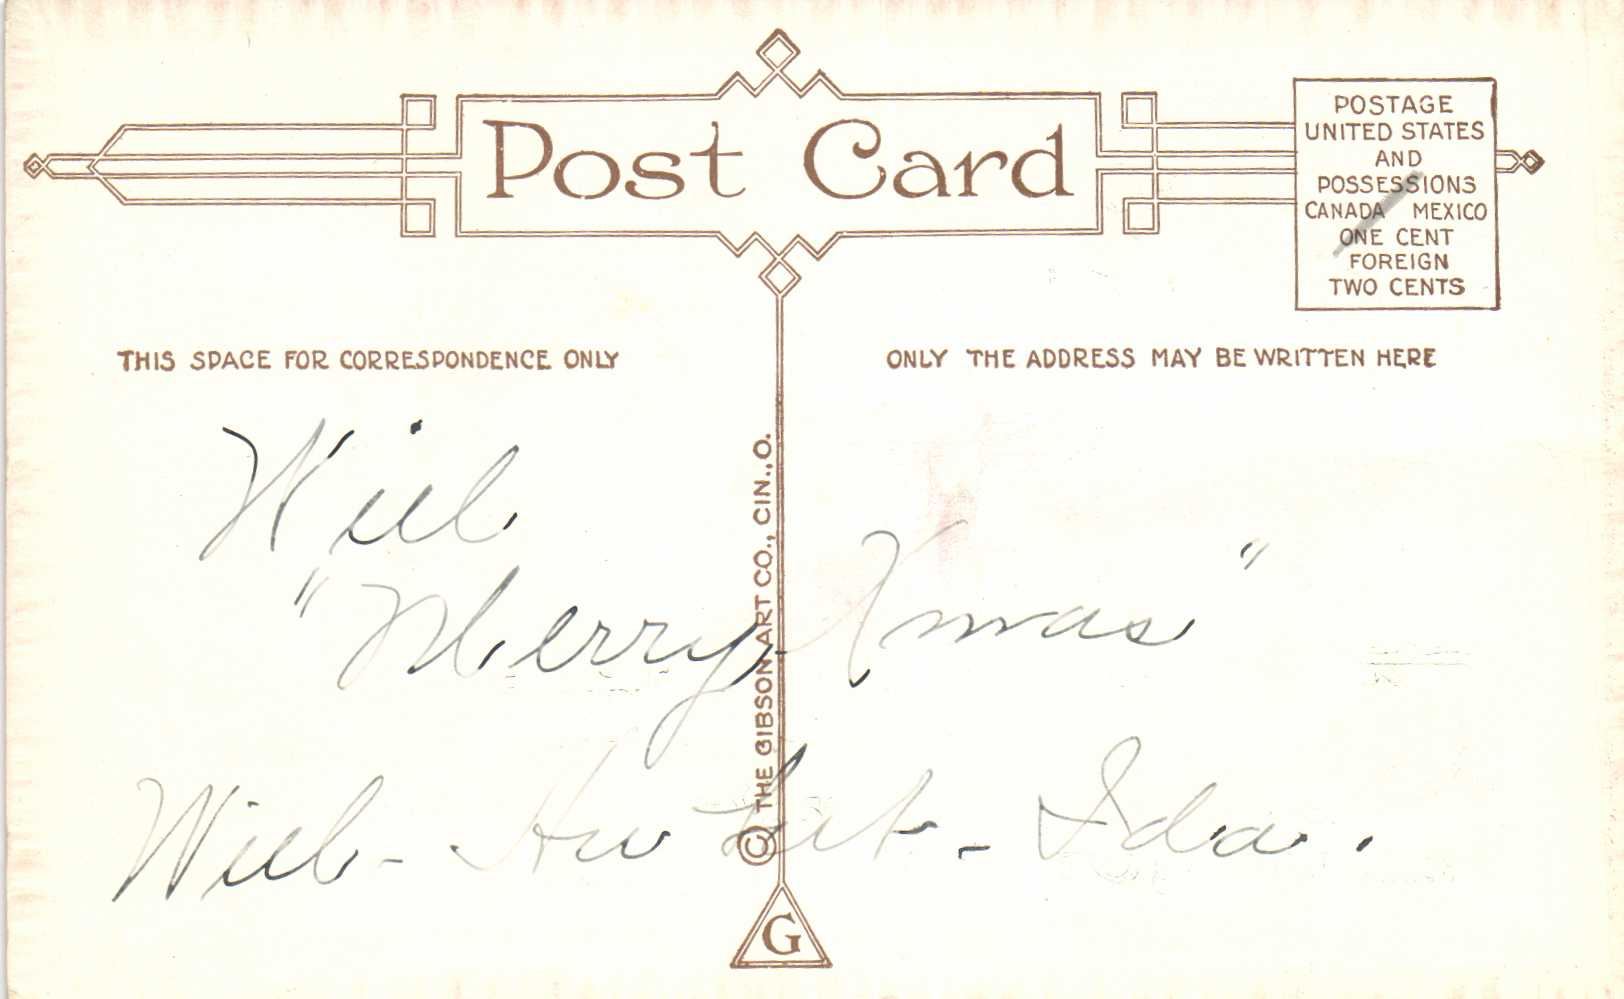 Post Card
POSTAGE
UNITED STATES
AND
POSSESSIONS
CANADA MEXICO
ONE CENT
FOREIGN
TWO CENTS
THIS SPACE FOR CORRESPONDENCE ONLY
ONLY THE ADDRESS MAY BE WRITTEN HERE
Will
"Merry Xmas"
Will - - Ida.
© THE GIBSON ART CO., CIN., O.
G